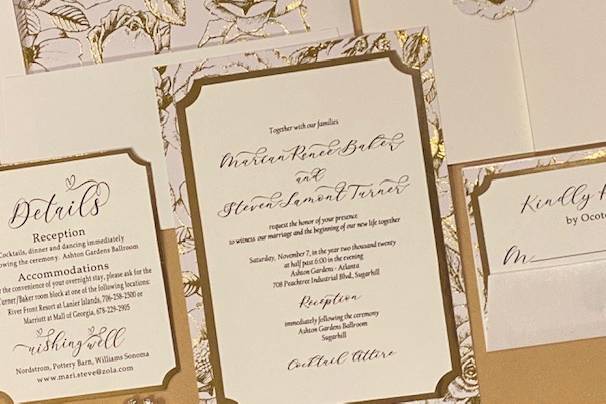 Details
Reception
Cocktails, dinner and dancing immediately
following the ceremony. Ashton Gardens Ballroom
Accommodations
the convenience of your overnight stay, please ask for the
Turner/Baker room block at one of the following locations:
River Front Resort at Lanier Islands, 706-258-2500 or
Marriott at Mall of Georgia, 678-229-2905
wishing well
Nordstrom, Pottery Barn, Williams Sonoma
www.mari.steve@zola.com
Together with our families
Marian Renee Baker
and
Steven Lamont Turner
request the honor of your presence
to witness our marriage and the beginning of our new life together
Saturday, November 7, in the year two thousand twenty
at half past 6:00 in the evening
Ashton Gardens - Atlanta
708 Peacheree Industrial Blvd., Sugarhill
Reception
immediately following the ceremony
Ashton Gardens Ballroom
Sugarhill
Cocktail Attire
Kindly
by Octo
M